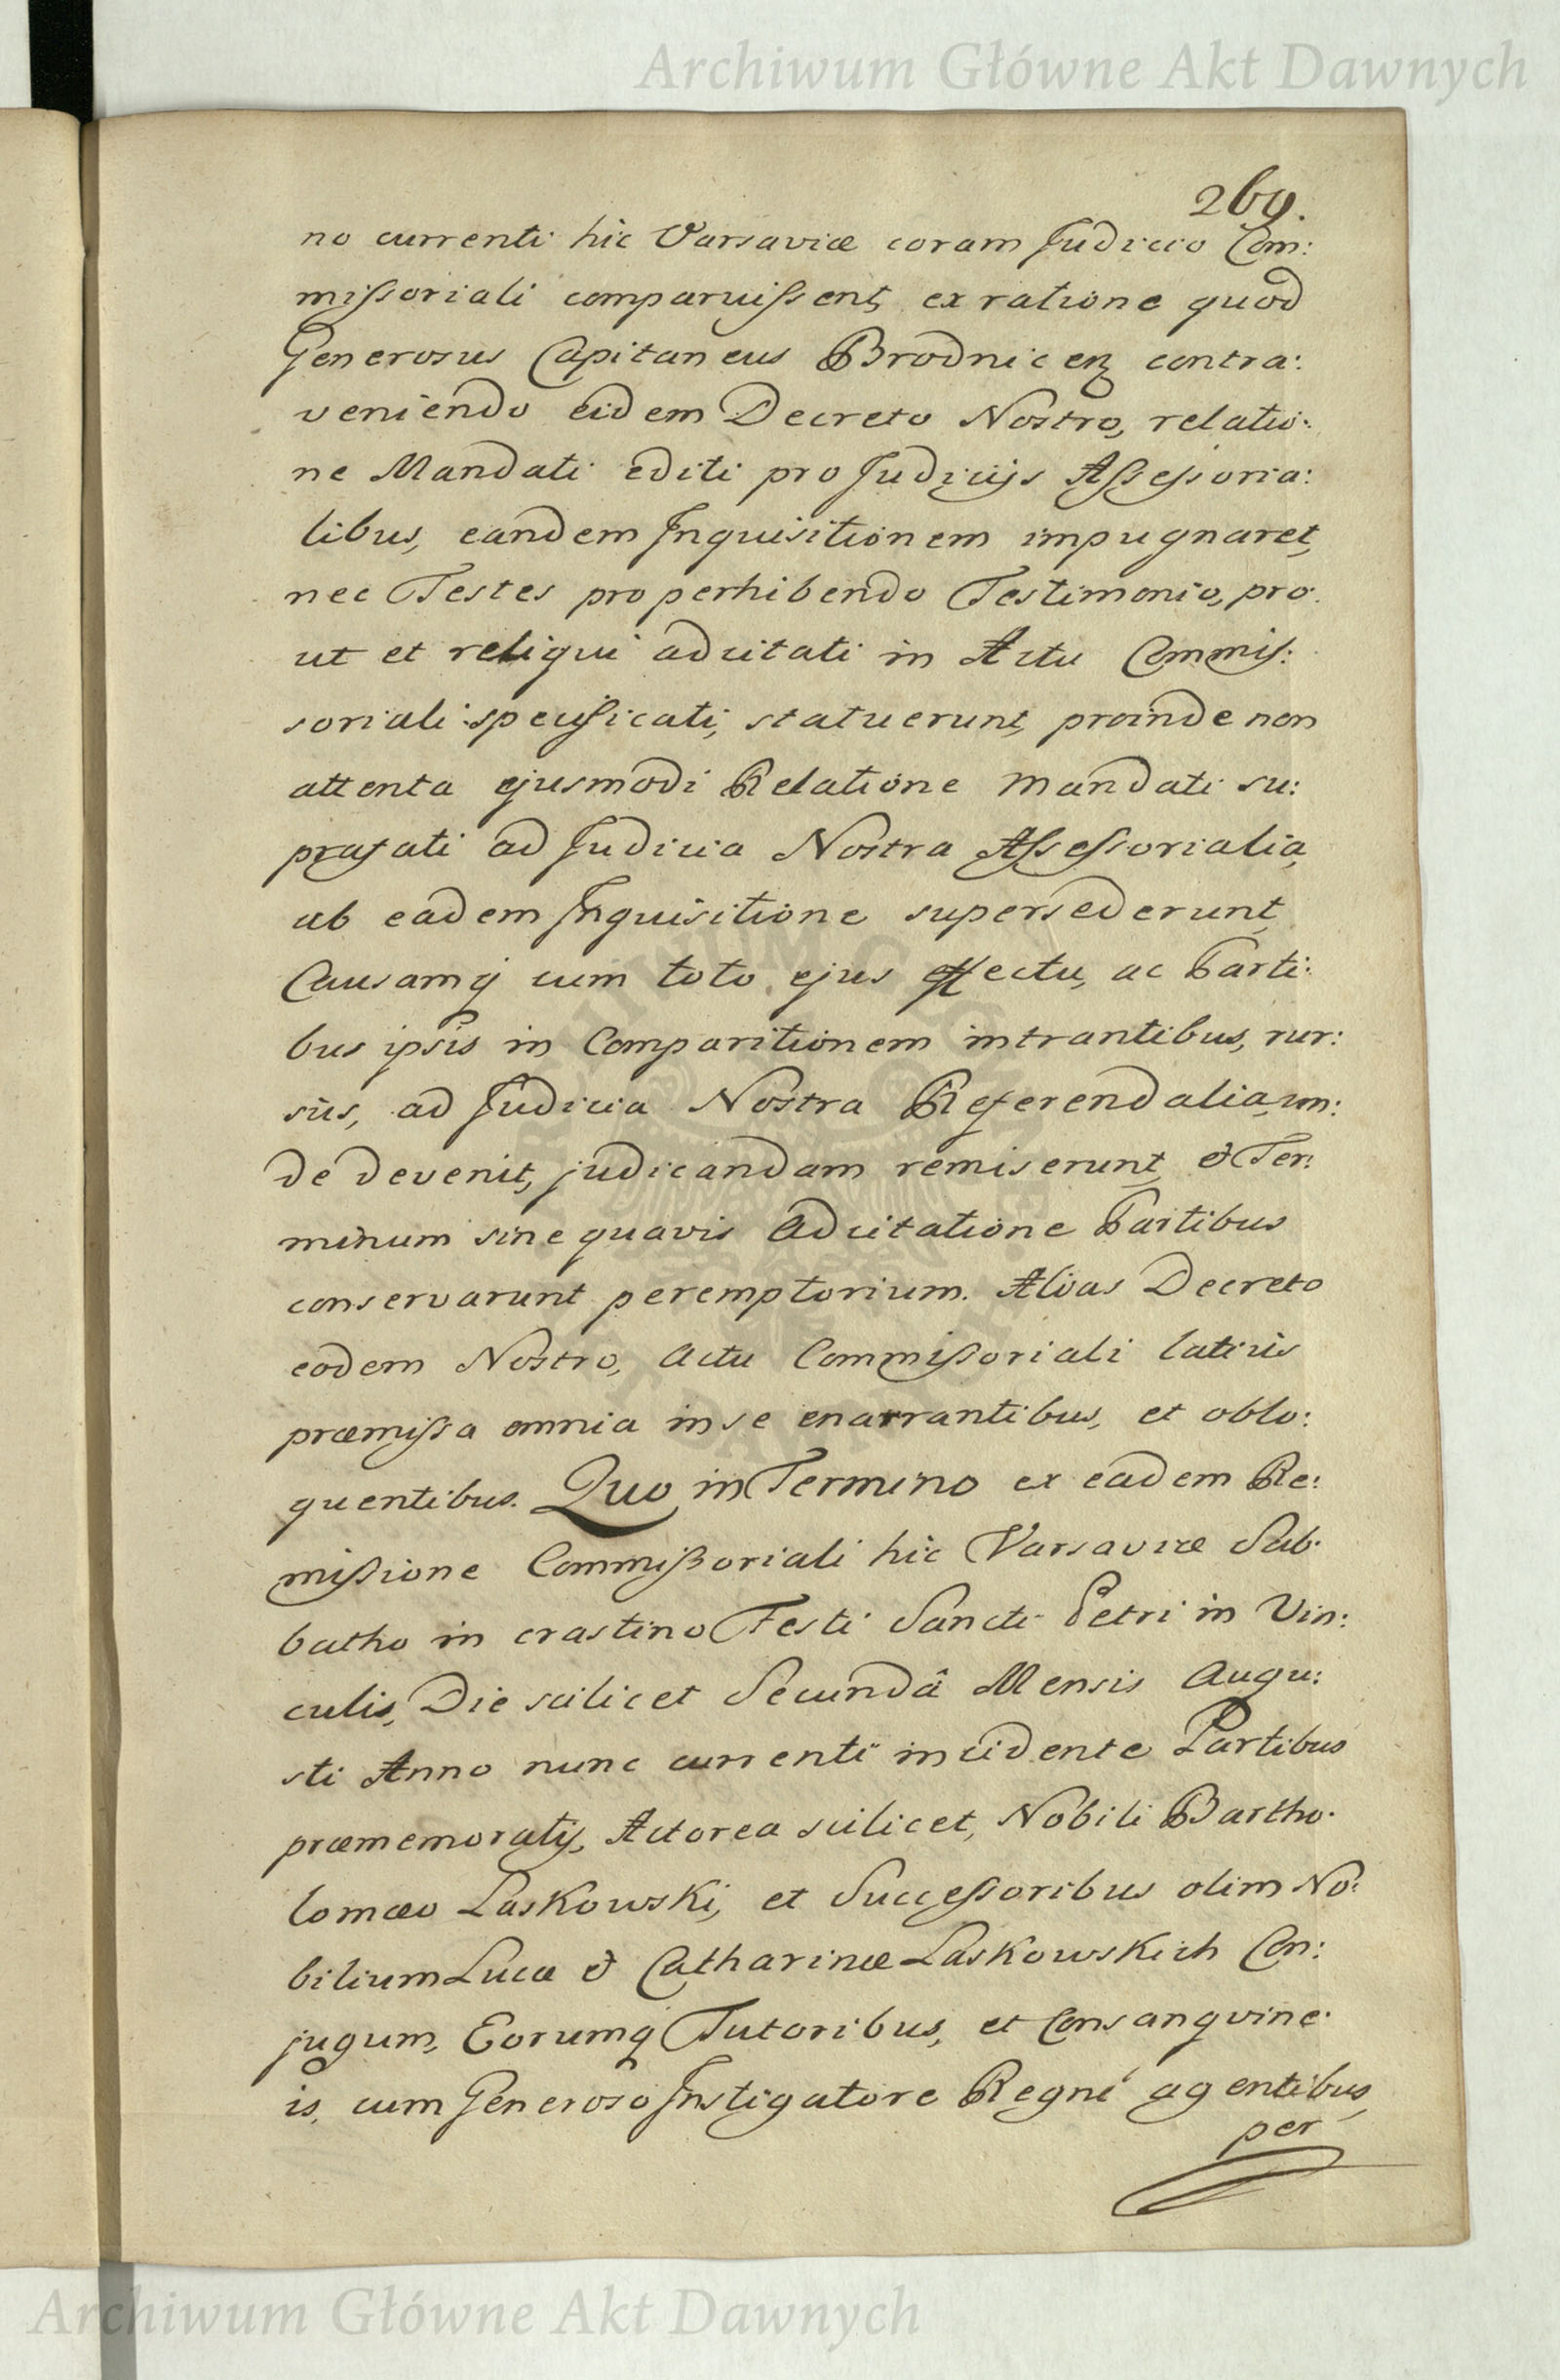 Archiwum Główne Akt Dawnych
269.
no currenti hic Varsaviæ coram Judicio Com:
missoriali comparuissent, ex ratione quod
Generosus Capitaneus Brodnicen contra:
veniendo eidem Decreto Nostro, relatio:
ne Mandati editi pro Judicijs Assessoria:
libus, eandem Inquisitionem impugnaret,
nec Testes pro perhibendo Testimonio, pro
ut et reliqui adcitati in Actu Commis:
soriali specificati, statuerunt, proinde non
attenta ejusmodi Relatione Mandati su:
prafati ad Judicia Nostra Assessorialia,
ab eadem Inquisitione supersederunt,
Causamq cum toto ejus effectu, ac Parti:
bus ipsis in Comparitionem intrantibus, rur:
sus, ad Judicia Nostra Referendalia, un:
de devenit, judicandam remiserunt, & Ter:
minum sine quavis Adcitatione Partibus
conservarunt peremptorium. Alias Decreto
eodem Nostro, Actu Commissoriali latius
præmissa omnia in se enarrantibus, et oblo:
quentibus. Quo in Termino ex eadem Re:
missione Commissoriali hic Varsaviæ Sab:
batho in crastino Festi Sancti Petri in Vin:
culis, Die scilicet Secundâ Mensis Augu:
sti Anno nunc currenti incidente Partibus
præmemoratis, Actorea scilicet, Nobili Bartho:
lomæo Laskowski, et Successoribus olim No:
bilium Lucæ & Catharinæ Laskowskich Con:
jugum, Eorumq Tutoribus, et Consanguine:
is, cum Generoso Instigatore Regni agentibus,
per
Archiwum Główne Akt Dawnych